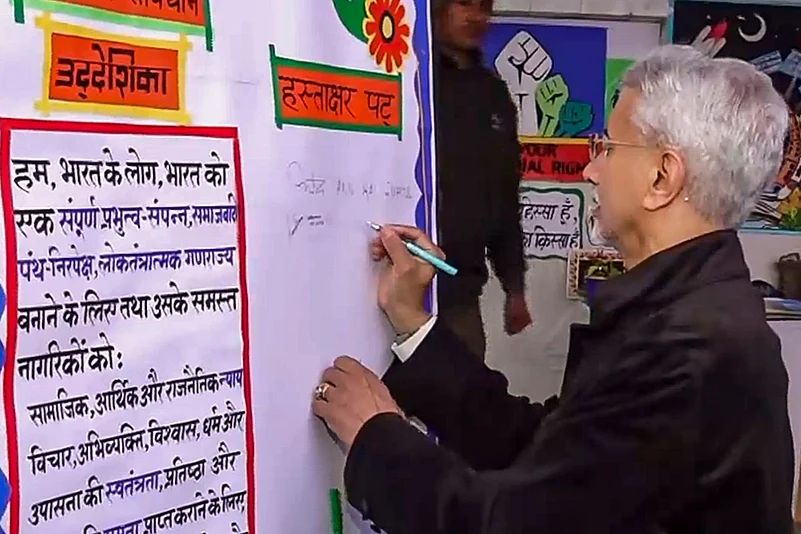 उद्देशिका
हस्ताक्षर पट्
हम, भारत के लोग, भारत को
एक संपूर्ण प्रभुत्व-संपन्न, समाजवादी
पंथ-निरपेक्ष, लोकतंत्रात्मक गणराज्य
बनाने के लिए तथा उसके समस्त
नागरिकों को:
सामाजिक, आर्थिक और राजनैतिक न्याय
विचार, अभिव्यक्ति, विश्वास, धर्म और
उपासना की स्वतंत्रता, प्रतिष्ठा और
प्राप्त कराने के लिए,
हिस्सा हूँ,
का क़िस्सा है